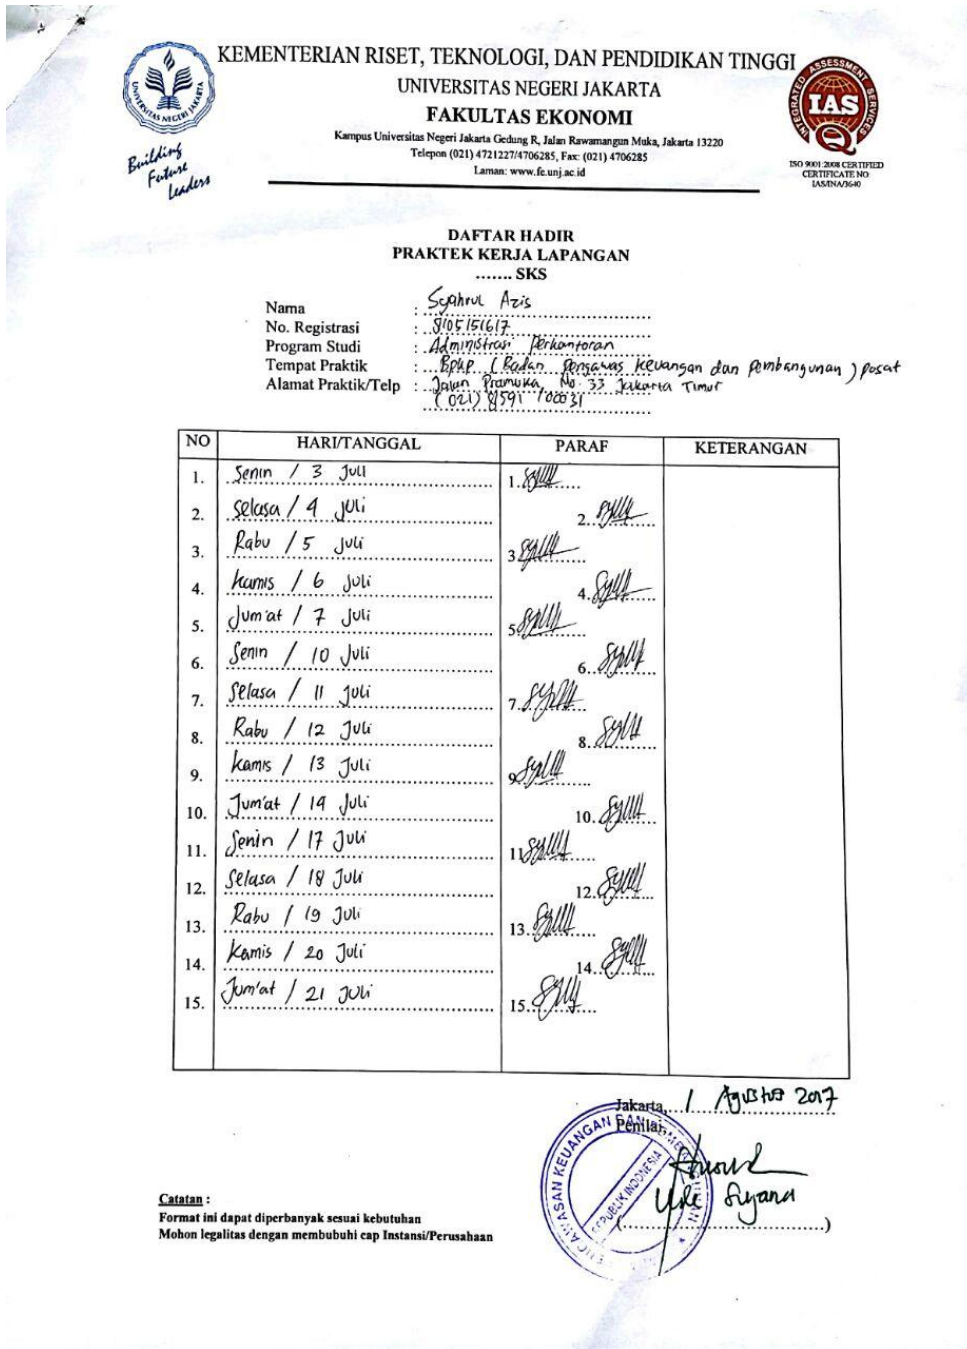 KEMENTERIAN RISET, TEKNOLOGI, DAN PENDIDIKAN TINGGI
UNIVERSITAS NEGERI JAKARTA
FAKULTAS EKONOMI
Kampus Universitas Negeri Jakarta Gedung R, Jalan Rawamangun Muka, Jakarta 13220
Telepon (021) 4721227/4706285, Fax: (021) 4706285
Laman: www.fe.unj.ac.id
UNIVERSITAS NEGERI JAKARTA
Building
Future
Leaders
INTEGRATED ASSESSMENT SERVICES
IAS
ISO 9001:2008 CERTIFIED
CERTIFICATE NO
IAS/INA/3640
DAFTAR HADIR
PRAKTEK KERJA LAPANGAN
....... SKS
Nama : Syahrul Azis
No. Registrasi : 8105151617
Program Studi : Administrasi Perkantoran
Tempat Praktik : BPKP (Badan Pengawas Keuangan dan Pembangunan) Pusat
Alamat Praktik/Telp : Jalan Pramuka No. 33 Jakarta Timur
(021) 8591
NO HARI/TANGGAL PARAF KETERANGAN
1. Senin / 3 Juli 1.
2. Selasa / 4 Juli 2.
3. Rabu / 5 Juli 3
4. Kamis / 6 Juli 4.
5. Jum'at / 7 Juli 5
6. Senin / 10 Juli 6.
7. Selasa / 11 Juli 7.
8. Rabu / 12 Juli 8.
9. Kamis / 13 Juli 9
10. Jum'at / 14 Juli 10.
11. Senin / 17 Juli 11
12. Selasa / 18 Juli 12.
13. Rabu / 19 Juli 13.
14. Kamis / 20 Juli 14.
15. Jum'at / 21 Juli 15.
Jakarta, 1 Agustus 2017
Penilai,
REPUBLIK INDONESIA
(....................)
Catatan :
Format ini dapat diperbanyak sesuai kebutuhan
Mohon legalitas dengan membubuhi cap Instansi/Perusahaan